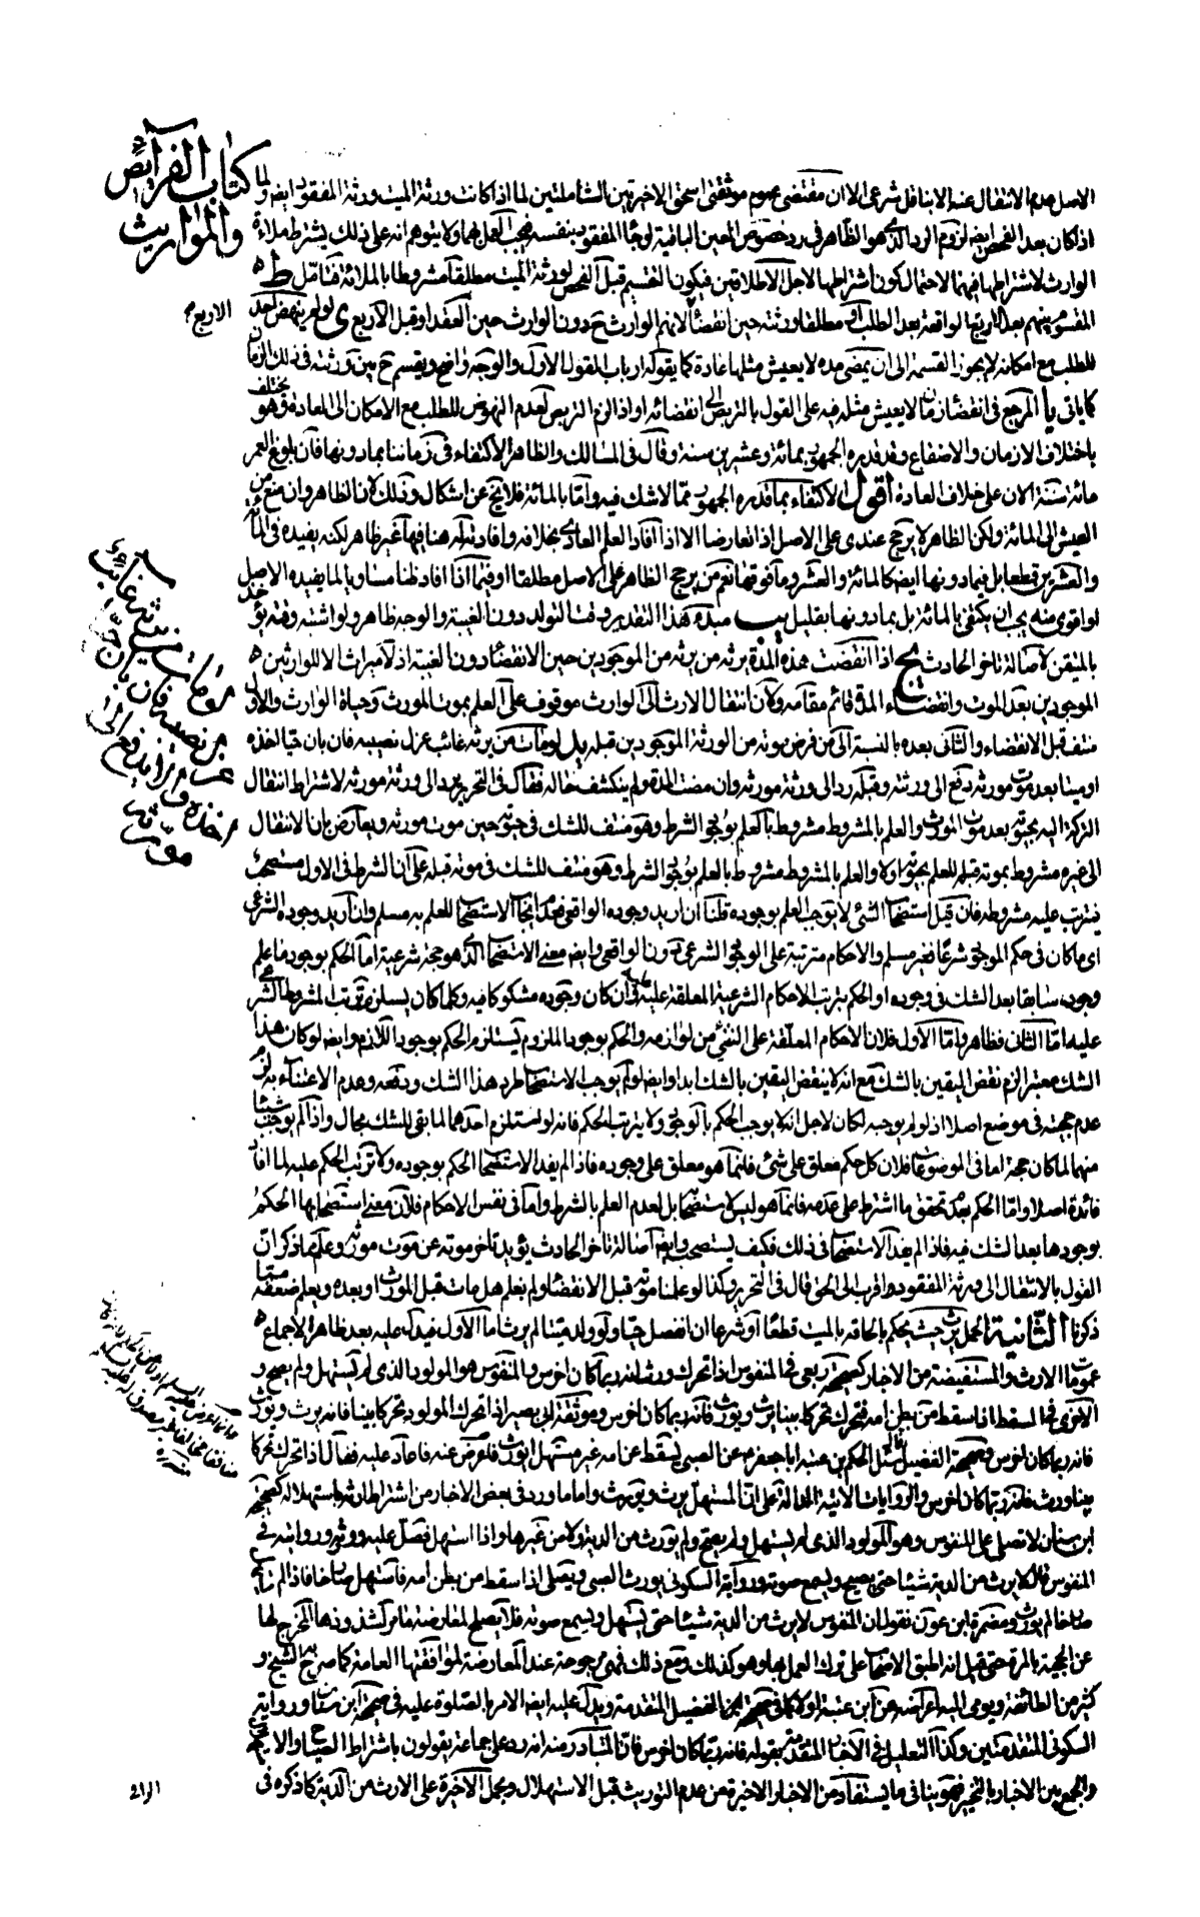 كتاب الفرائض
والمواريث
الاصل عدم الانتقال عنه الا بناقل شرعى الا ان مقتضى عموم موثقتى اسحق الاخيرتين الشاملتين لما اذا كانت ورثة الميت ورثة المفقود ايضا ولما
اذا كان بعد الفحص ايضا لزوم الرد الذى هو الظاهر فى رد خصوص العين الباقية لو جاء المفقود بنفسه فيجب العمل بهما ولا يتوهم انه على ذلك يشترط ملاءة
الوارث لاشتراطها فيهما لاحتمال كون اشتراطها لاجل الاطلاقين فيكون التقسيم قبل الفحص لورثة الميت مطلقا مشروطا بالملائة فتامل ط
المقسوم بينهم بعد الاربع الواقعة بعد الطلب او مطلقا ورثته حين انقضائها لانهم الوارث ح دون الوارث حين الفقد او قبل الاربع ى لو لم ينهض احد
للطلب مع امكانه لا يجوز القسمة الى ان يمضى مدة لا يعيش مثلها عادة كما يقوله ارباب القول الاول والوجه واضح ويقسم ح بين ورثته فى ذلك الزمان
كما ياتى يا المرجع فى انقضاء زمان لا يعيش مثله فيه على القول بالتربص الى انقضائه او اذا لزم التربص لعدم النهوض للطلب مع الامكان الى العادة وهو يختلف
باختلاف الازمان والاصقاع وقد قدره الجمهور بمائة وعشرين سنة وقال فى المسالك والظاهر الاكتفاء فى زماننا بما دونها فان بلوغ العمر
مائة سنة الان على خلاف العادة اقول الاكتفاء بما قدره الجمهور مما لا شك فيه واما بالمائة فلا يخ عن اشكال وذلك لان الظاهر وان منع من
العيش الى المائة ولكن الظاهر لا يرجح عندى على الاصل اذا تعارضا الا اذا افاد العلم العادى بخلافه وافادته له هنا فيها غير ظاهر لكنه يفيده فى المائة
والعشرين قطعا بل فيما دونها ايضا كالمائة والعشر وما فوقها نعم من يرجح الظاهر على الاصل مطلقا او فيما اذا افاد ظنا مساويا لما يفيده الاصل
او اقوى منه يجب ان يكتفى بالمائة بل بما دونها بقليل يب مبدء هذا التقدير وقت التولد دون الغيبة والوجه ظاهر ولو اشتبه وقته يؤخذ
بالمتيقن لاصالة تاخر الحادث يج اذا انقضت هذه المدة يرثه من يرثه من الموجودين حين الانقضاء دون الغيبة اذ لا ميراث الا للوارثين
الموجودين بعد الموت وانقضاء المدة قائم مقامه ولان انتقال الارث الى الوارث موقوف على العلم بموت المورث وحياة الوارث والاول
منتف قبل الانقضاء والثانى بعده بالنسبة الى من فرض موته من الورثة الموجودين قبله يد لو مات من يرثه غائب عزل نصيبه فان بان حيا اخذه
او ميتا بعد موت مورثه دفع الى ورثته وقبله رد الى ورثة مورثه وان مضت المدة ولم ينكشف حاله فقال فى التحرير يرد الى ورثة مورثه لاشتراط انتقال
التركة اليه بحيوته بعد موت المورث والعلم بالمشروط مشروط بالعلم بوجود الشرط وهو منتف للشك فى حيوته حين موت مورثه ويعارض بان الانتقال
الى غيره مشروط بموته قبله للعلم بحيوته اولا والعلم بالمشروط مشروط بالعلم بوجود الشرط وهو منتف للشك فى موته قبله على ان الشرط فى الاول مستصحب
فيترتب عليه مشروطه فان قيل استصحاب الشئ لا يوجب العلم بوجوده قلنا ان اريد وجوده الواقعى فعدم ايجاب الاستصحاب للعلم به مسلم وان اريد وجوده الشرعى
اى ما كان فى حكم الموجود شرعا فغير مسلم والاحكام مترتبة على الوجود الشرعى دون الواقعى وايضا معنى الاستصحاب الذى هو حجة شرعية اما الحكم بوجود ما علم
وجوده سابقا بعد الشك فى وجوده او الحكم بترتب الاحكام الشرعية المعلقة عليه فى ان كان وجوده مشكوكا فيه وكلما كان يستلزم ترتب المشروط الشرعى
عليه اما الثانى فظاهر واما الاول فلان الاحكام المعلقة على الشئ من لوازمه والحكم بوجود الملزوم يستلزم الحكم بوجود اللازم وايضا لو كان هذا
الشك معتبرا لزم نقض اليقين بالشك مع انه لا ينقض اليقين بالشك ابدا وايضا لو لم يوجب الاستصحاب طرد هذا الشك ودفعه وعدم الاعتناء به لزم
عدم حجيته فى موضع اصلا اذ لو لم يوجبه لكان لاجل انه لا يوجب الحكم بالوجود ولا يترتب الحكم فانه لو استلزم احدهما لما بقى للشك مجال واذا لم يوجب شيئا
منهما لما كان حجة اما فى الموضوعات فلان كل حكم معلق على شئ فانما هو معلق على وجوده فاذا لم يفد الاستصحاب الحكم بوجوده ولا ترتب الحكم عليه لما افاد
فائدة اصلا واما الحكم بعدم تحقق ما اشترط على عدمه فانما هو ليس لاستصحابه بل لعدم العلم بالشرط واما فى نفس الاحكام فلان معنى استصحابها الحكم
بوجودها بعد الشك فيه فاذا لم يفد الاستصحاب فى ذلك فكيف يستصحب وايضا اصالة تاخر الحادث يؤيد تاخر موته عن موت مورثه وعلم بما ذكر ان
القول بالانتقال الى ورثة المفقود اقرب الى الحق قال فى التحرير وكذا لو علمنا موته قبل الانقضاء ولم يعلم هل مات قبل المورث او بعده ويعلم ضعفه مما
ذكرنا الثانية الحمل يرث حيث يحكم بالحاقه بالميت قطعا او شرعا ان انفصل حيا ولو ولد ميتا لم يرث اما الاول فيدل عليه بعد ظاهر الاجماع
عمومات الارث والمستفيضة من الاخبار كصحيحة ربعى فى المنفوس اذا تحرك ورث انه ربما كان اخرس والمنفوس هو المولود الذى لم يستهل ولم يصح و
الاخرى فى السقط اذا سقط من بطن امه فتحرك تحركا بينا يرث ويورث فانه ربما كان اخرس وموثقة ابى بصير اذا تحرك المولود تحركا بينا فانه يرث ويورث
فانه ربما كان اخرس وصحيحة الفضيل قال سئل الحكم بن عتبة ابا جعفر ع عن الصبى يسقط عن امه غير مستهل ايورث فاعرض عنه فاعاد عليه فقال اذا تحرك تحركا
بينا ورث فانه ربما كان اخرس والروايات الاتية الدالة على ان المستهل يرث ويورث واما ما ورد فى بعض الاخبار من اشتراط ارثه باستهلاله كصحيحة
ابن سنان لا تصلى على المنفوس وهو المولود الذى لم يستهل ولم يصح ولم يورث من الدية ولا من غيرها واذا استهل فصل عليه وورثه وروايته فى
المنفوس قال لا يرث من الدية شيئا حتى يصيح ويسمع صوته ورواية السكونى يورث الصبى ويصلى اذا سقط من بطن امه فاستهل صارخا فاذا لم يستهل
صارخا لم يورث ومضمرة ابن عون نقول ان المنفوس لا يرث من الدية شيئا حتى يستهل ويسمع صوته فلا يصلح لمعارضة ما مر لشذوذها المخرج لها
عن الحجية بالمرة حتى قيل انه اطبق الاصحاب على ترك العمل بها وهو كذلك ومع ذلك فهى مرجوحة عند المعارضة لموافقتها العامة كما صرح به الشيخ و
كثير من الطائفة ويومى اليه اعراضه عن ابن عتبة اولا كما فى صحيحة الفضيل المتقدمة ويدل عليه ايضا الامر بالصلوة عليه فى صحيحة ابن سنان ورواية
السكونى المتقدمتين وكذا التعليل فى الاخبار المتقدمة بقوله فانه ربما كان اخرس فان المتبادر منه انه رد على جماعة يقولون باشتراط الصياح والاستهلال
والجمع بين الاخبار بالتخيير فهو ينافى ما يستفاد من الاخبار الاخيرة من عدم التوريث قبل الاستهلال وبحمل الاخيرة على الارث من الدية كما ذكره فى
الاربع
لو مات من يرثه غائب
عزل نصيبه فان بان حيا
اخذه